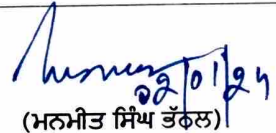 02/01/24
(ਮਨਮੀਤ ਸਿੰਘ ਭੱਠਲ)